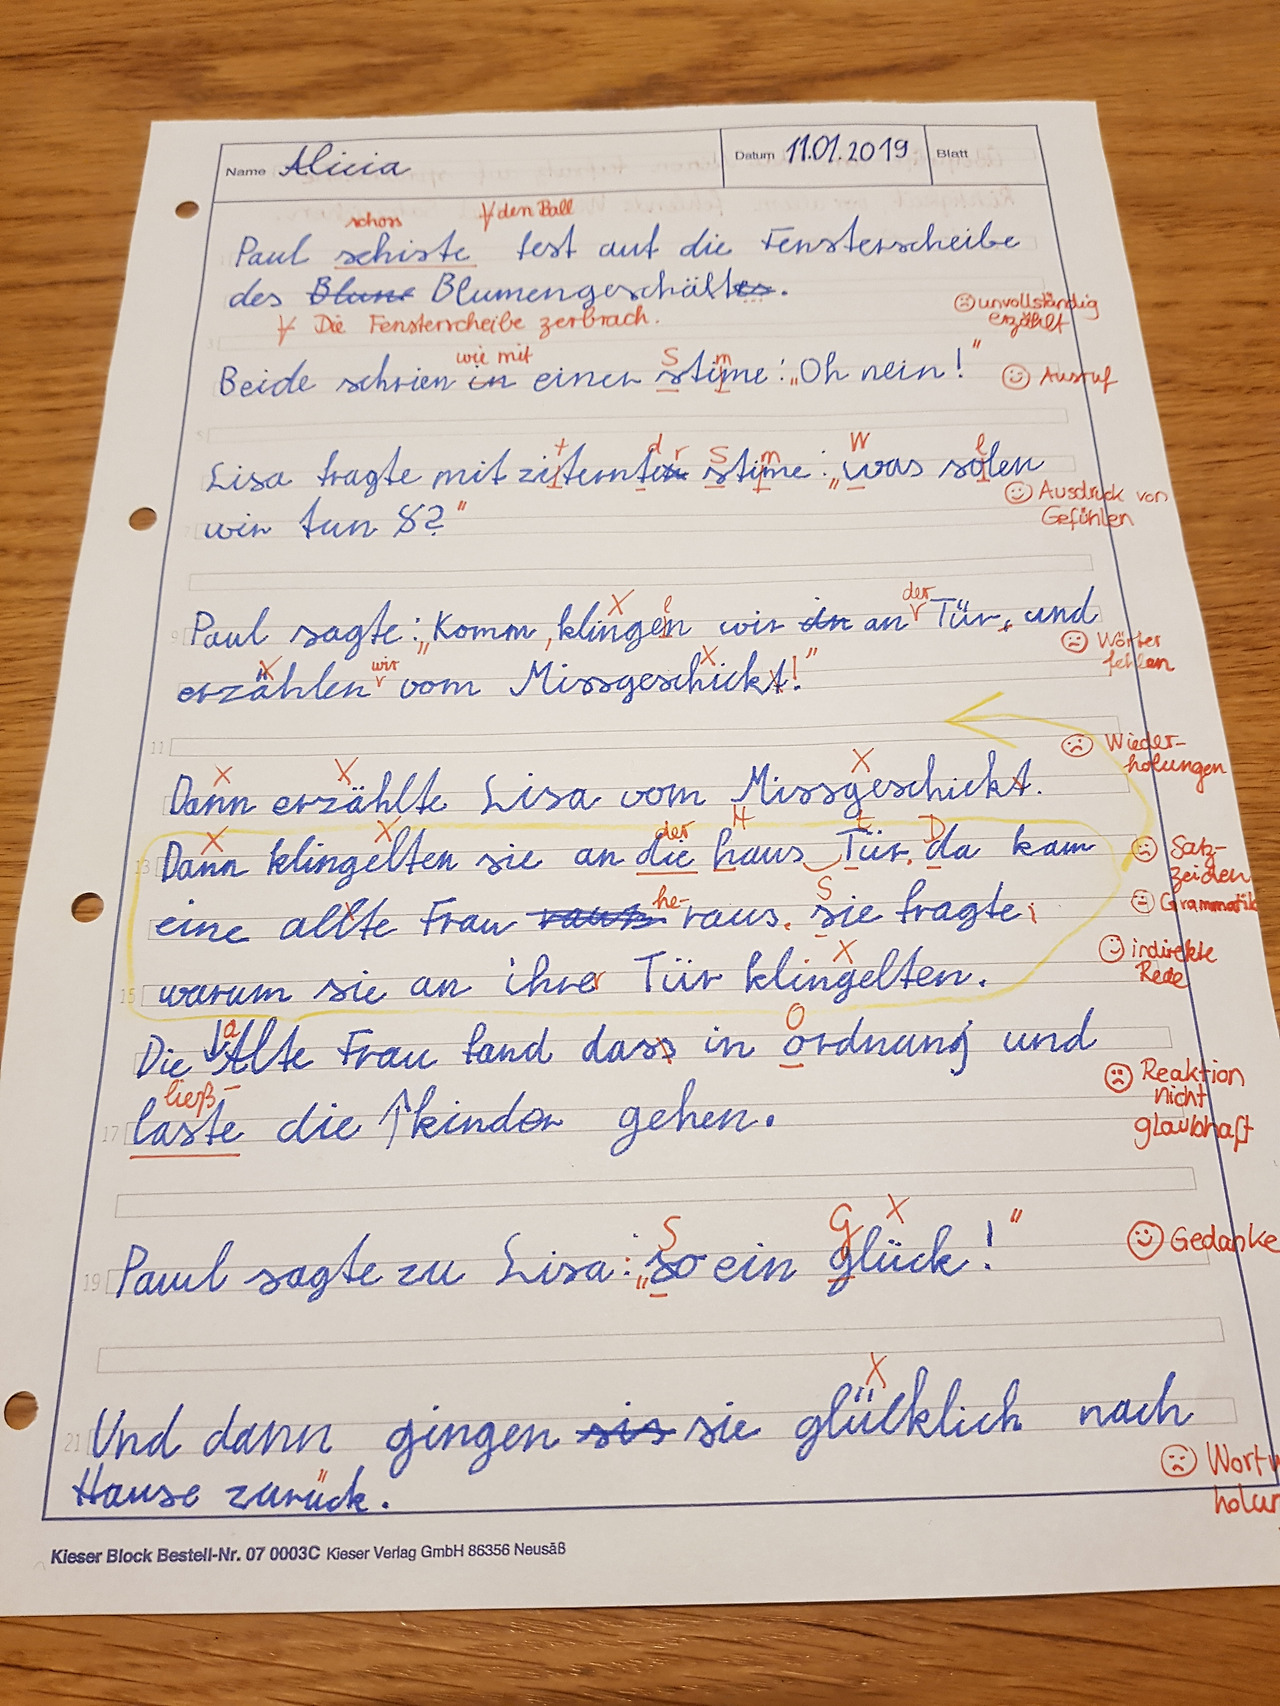 Name Alicia Datum 11.01.2019 Blatt
schoss den Ball
Paul schiste fest auf die Fensterscheibe
des Blume Blumengeschäftes.
☹ unvollständig
erzählt
Die Fensterscheibe zerbrach.
wie mit S m
Beide schrien in einer stime: „Oh nein!"
☺ Ausruf
t d r S m W l
Lisa fragte mit ziternter stime: „was solen
☺ Ausdruck von
Gefühlen
wir tun ?"
X e der
Paul sagte: „Komm, klingen wir in an Tür, und
☹ Wörter
fehlen
X wir X
erzählen vom Missgeschickt!"
11
☹ Wieder-
holungen
X X X
Dann erzählte Lisa vom Missgeschickt.
X X der H t D
13 Dann klingelten sie an die haus Tür, da kam
☹ Satz-
zeichen
he- S
eine allte Frau raus raus. sie fragte,
☹ Grammatik
☺ indirekte
Rede
X
15 warum sie an ihrer Tür klingelten.
a O
Die Alte Frau fand dass in ordnung und
☹ Reaktion
nicht
glaubhaft
ließ-
17 laste die kinder gehen.
S G X
19 Paul sagte zu Lisa: „so ein glück!"
☺ Gedanke
X
21 Und dann gingen sis sie glücklich nach
☹ Wortw
holun
Hause zurück.
Kieser Block Bestell-Nr. 07 0003C Kieser Verlag GmbH 86356 Neusäß